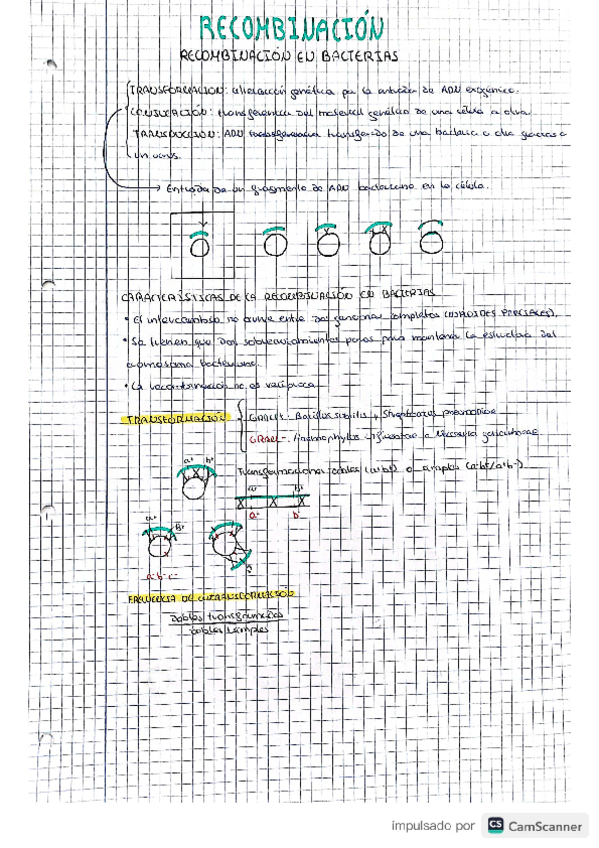 RECOMBINACIÓN
RECOMBINACIÓN EN BACTERIAS
TRANSFORMACION: alteracción genética por la entrada de ADN exogénico.
CONJUGACIÓN: transferencia del material genético de una célula a otra.
TRANSDUCCION: ADN transferencia transferido de una bacteria a otra gracias a
un virus.
Entrada de un fragmento de ADN bacteriano en la célula.
CARACTERÍSTICAS DE LA RECOMBINACIÓN EN BACTERIAS
• El intercambio no ocurre entre dos genomas completos (DIPLOIDES PARCIALES).
• Se tienen que dar sobrecruzamientos pares para mantener la estructura del
cromosoma bacteriano.
• La recombinación no es recíproca
TRANSFORMACIÓN
GRAM+. Bacillus subtilis y Streptococcus pneumoniae
GRAM-. Haemophylus influenzae o Neisseria
a+ b+
Transformaciones dobles (a+b+) o simples (a-b+/a+b-)
a+ B+
a- b-
a+ B+
a-b-c-
FRECUENCIA DE COTRANSFORMACIÓN
Dobles transformantes
dobles + simples